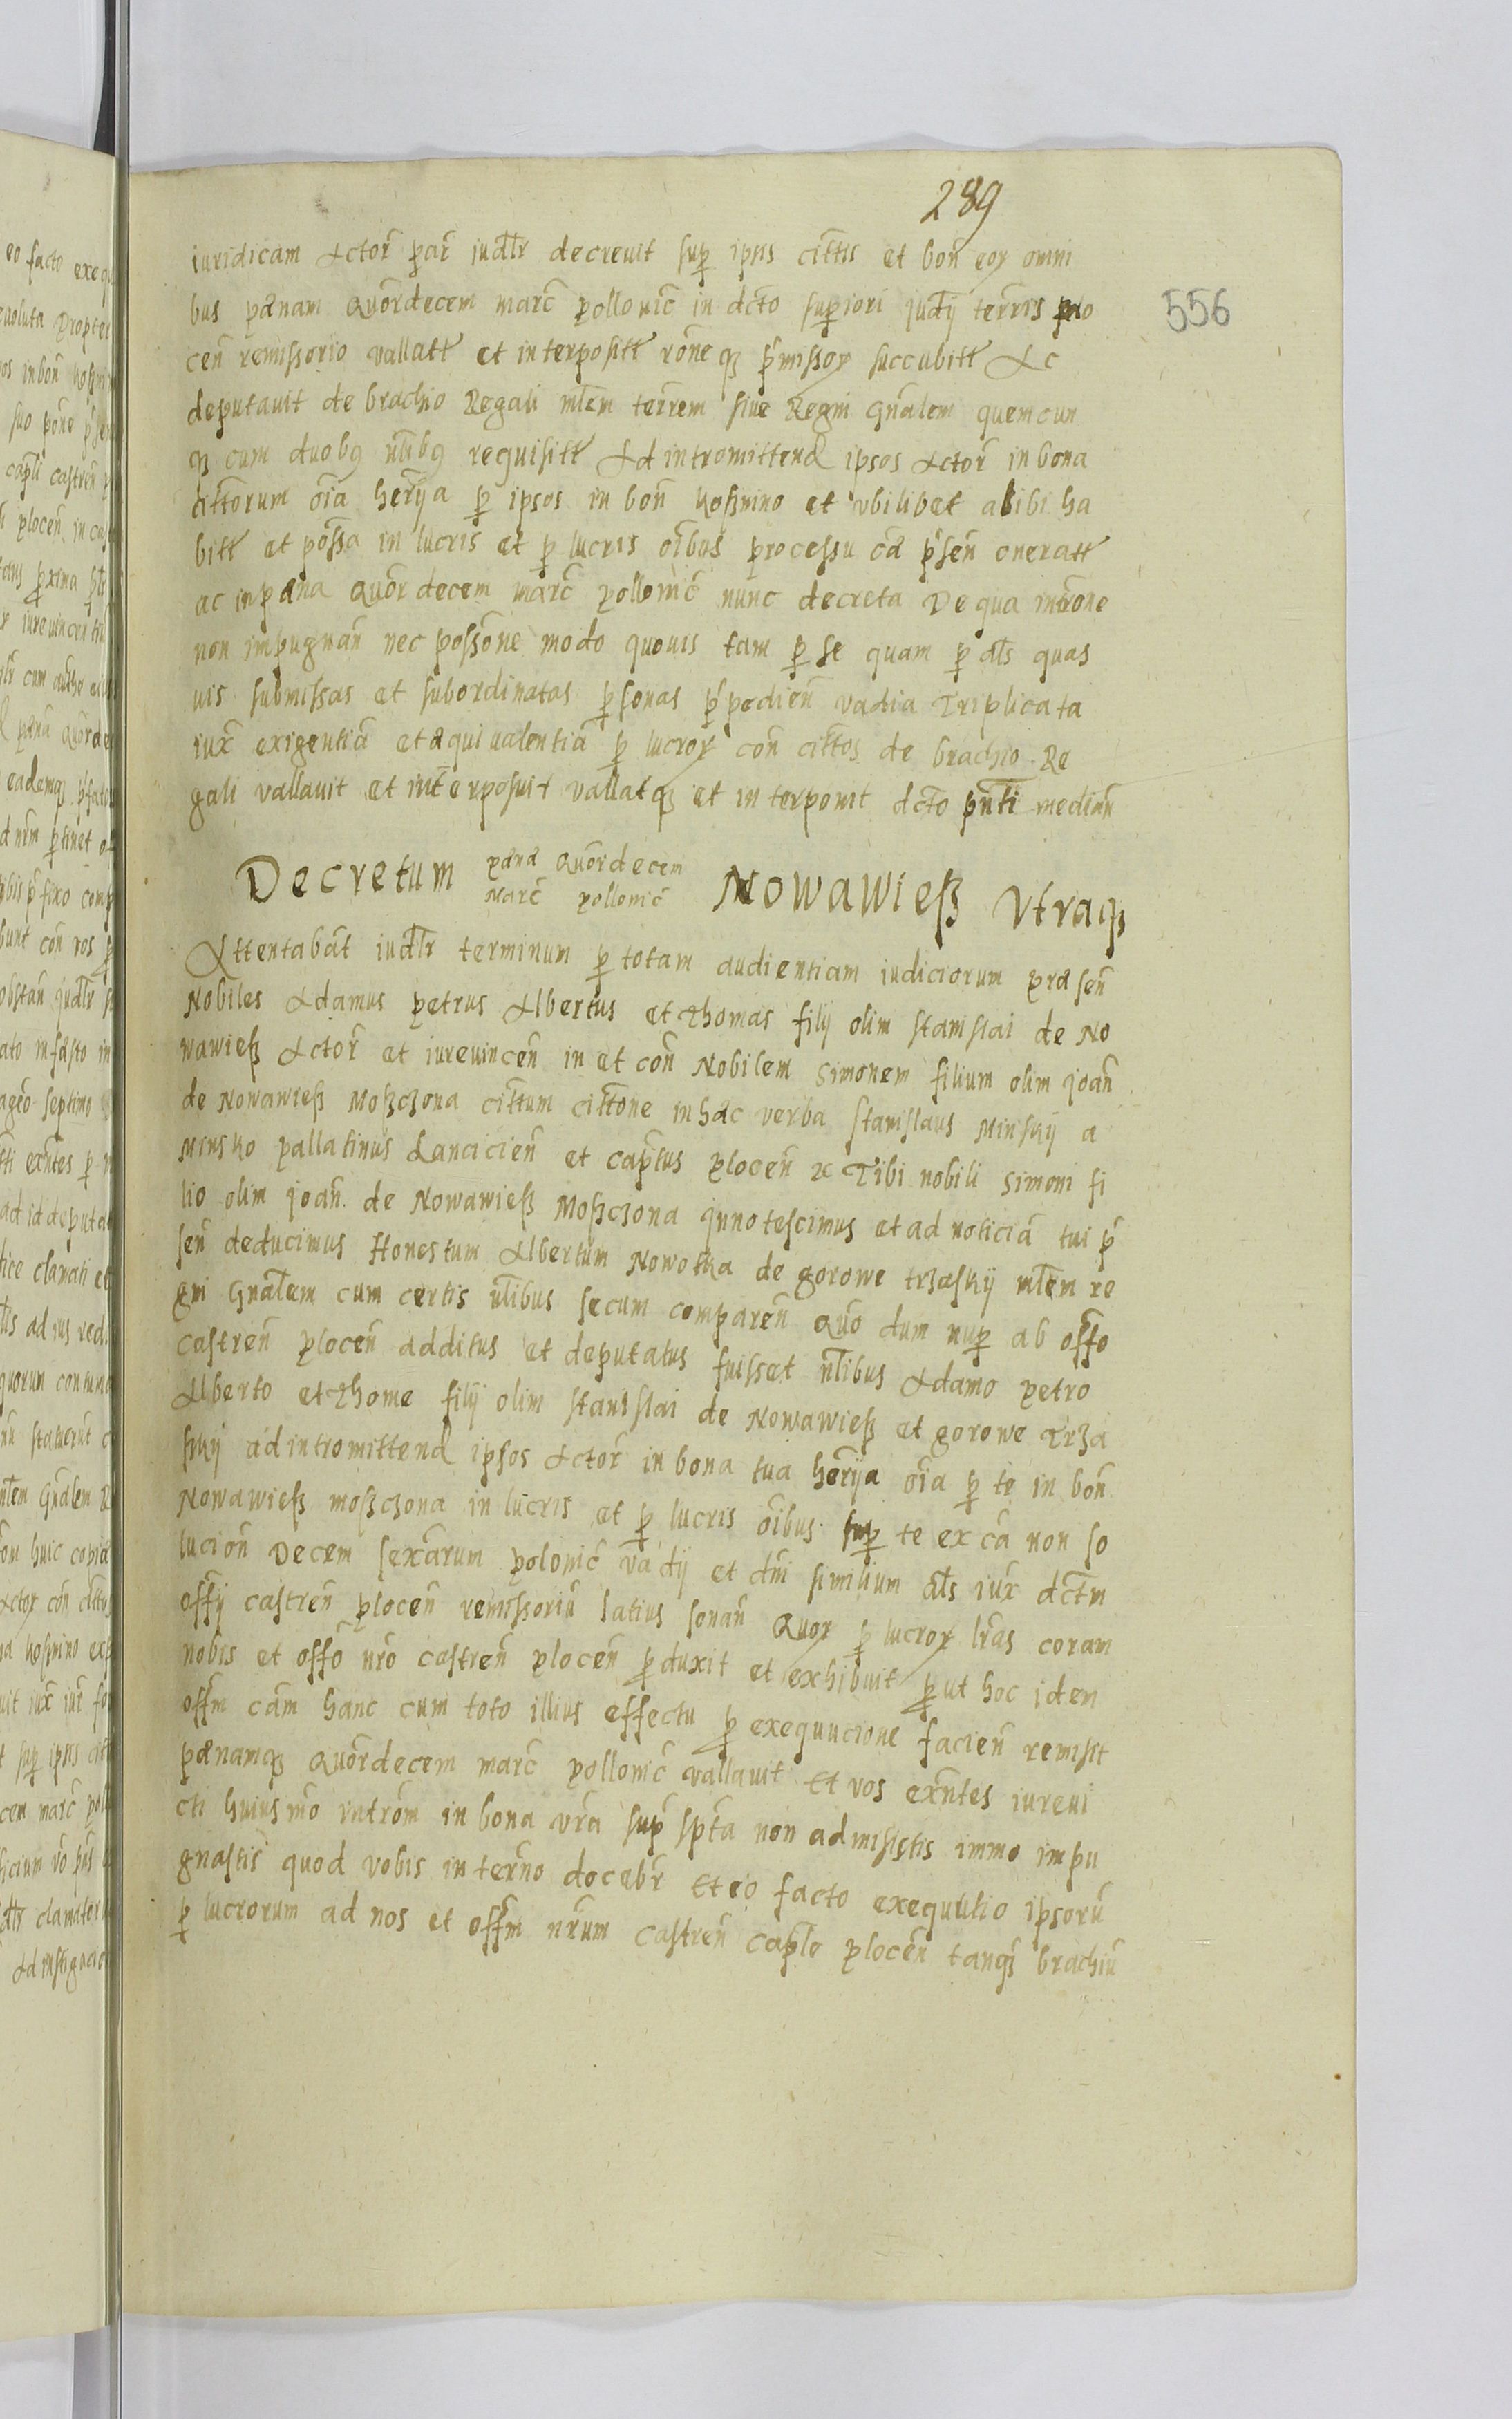 289
556
iuridicam Actor̃ par̃ iudlr̃ decreuit sup ipsis cittis et bon̄ eor omni
bus pænam Quor̃decem marc̃ pollonic̃ in dcto superiori judij terris
cen̄ remissorio vallatt et interpositt rone qz p̃missor succubitt Ac
deputauit de brachio Regali mlem terrem siue Regni Gnalem quemcun
qz cum duobz nlibz requisitt Ad intromittend ipsos Actor̃ in bona
cittorum oia herija p ipsos in bon̄ Kosznino et vbilibet alibi ha
bitt et possa in lucris et p lucris oibus processu cā p̃sen̄ oneratt
ac in pæna Quor̃decem marc̃ pollonic̃ nunc decreta De qua introne
non impugnan̄ nec possone modo quouis tam p se quam p als quas
uis submissas et subordinatas p̱sonas p̃pedien̄ vadia Triplicata
iux exigentiā et æquiualentiā p lucror con̄ cittos de brachio Re
gali vallauit et interposuit vallatqz et interponit dcto pn̄ti median̄
Decretum pænā Quordecem marc̃ pollonic̃ Nowawiesz Vtraqz
Attentabāt iudlr̃ terminum p totam audientiam iudiciorum præsen̄
Nobiles Adamus petrus Albertus et Thomas filij olim stanislai de No
wawiesz Actor̃ et iureuincen̄ in et con̄ Nobilem Simonem filium olim joan̄
de Nowawiesz Moszczona cittum cittone in hæc verba Stanislaus Minskij a
Minsko pallatinus Lancicien̄ et captus plocen̄ &c Tibi nobili Simoni fi
lio olim joan̄ de Nowawiesz Moszczona jnnotescimus et ad noticiā tui p̃
sen̄ deducimus Honestum Albertum Nowotka de gorowe trzaskij mlem re
gni Gnalem cum certis nlibus secum comparen̄ Quo dum nup ab offo
castren̄ plocen̄ additus et deputatus fuisset nlibus Adamo petro
Alberto et Thome filij olim stanislai de Nowawiesz et gorowe Trza
skij ad intromittend ipsos Actor̃ in bona tua herija oia p te in bon̄
Nowawiesz moszczona in lucris et p lucris oibus sup te ex cā non so
lucion̄ Decem sexarum polonic̃ vadij et dm̄i similium als iux dctm
offij castren̄ plocen̄ remissoriū latius sonan̄ Quor p lucror lras coram
nobis et offo nr̃o castren̄ plocen̄ p̱duxit et exhibuit p̱ut hoc idem
offm cām hanc cum toto illius effectu p exequucione facien̄ remisit
pænamqz Quor̃decem marc̃ pollonic̃ vallauit Et vos exn̄tes iureui
cti huiusmo introm̄ in bona vr̃a sup spta non admisistis immo impu
gnastis quod vobis in ter̃no docebr̃ Et eo facto exequutio ipsorū
p lucrorum ad nos et offm nr̃um castren̄ caple plocen̄ tanqz brachiū